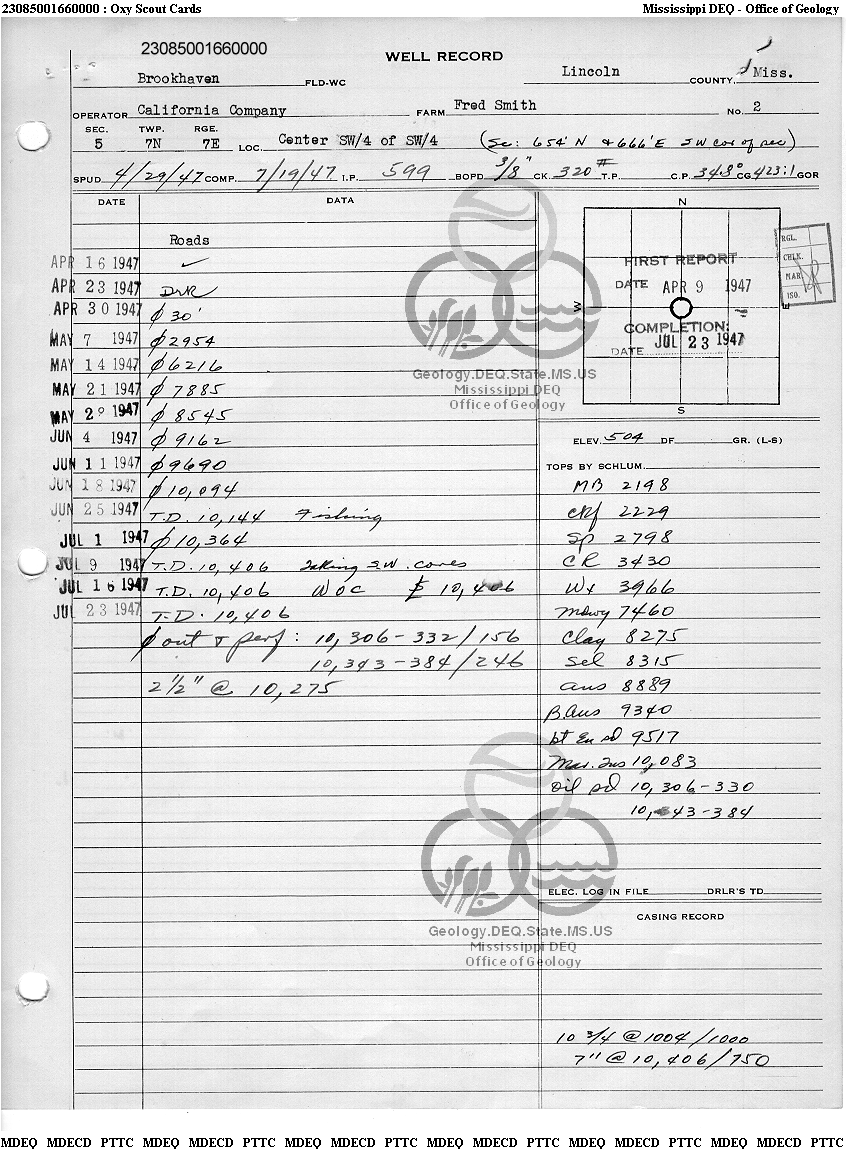 23085001660000 : Oxy Scout Cards Mississippi DEQ - Office of Geology
23085001660000
WELL RECORD
Brookhaven FLD-WC Lincoln COUNTY, Miss.
OPERATOR California Company FARM Fred Smith No. 2
SEC. TWP. RGE.
5 7N 7E LOC. Center SW/4 of SW/4 (Sc: 654' N & 666' E SW cor of sec)
SPUD 4/29/47 COMP. 7/19/47 I.P. 599 BOPD 3/8" CK. 320# T.P. C.P. 34.8° CG 423:1 GOR
DATE DATA
Roads
APR 16 1947 ✓
APR 23 1947 DrR
APR 30 1947 ⌀ 30'
MAY 7 1947 ⌀ 2954
MAY 14 1947 ⌀ 6216
MAY 21 1947 ⌀ 7885
MAY 29 1947 ⌀ 8545
JUN 4 1947 ⌀ 9162
JUN 11 1947 ⌀ 9690
JUN 18 1947 ⌀ 10,094
JUN 25 1947 T.D. 10,144 Fishing
JUL 1 1947 ⌀ 10,364
JUL 9 1947 T.D. 10,406 Taking S.W. cores
JUL 16 1947 T.D. 10,406 WOC 10,406
JUL 23 1947 T.D. 10,406
⌀ out & perf: 10,306-332/156
10,343-384/246
2 1/2" @ 10,275
N
W
E
S
FIRST REPORT
DATE APR 9 1947
COMPLETION:
JUL 23 1947
DATE
RGL.
CHLK.
MAR.
ISO.
Geology.DEQ.State.MS.US
Mississippi DEQ
Office of Geology
ELEV. 504 DF GR. (L-S)
TOPS BY SCHLUM.
MB 2198
Ckf 2229
Sp 2798
CR 3430
Wx 3966
Mswy 7460
Clay 8275
Sel 8315
Aus 8889
B.Aus 9340
bt Eu sd 9517
Mar. Tus 10,083
Oil sd 10,306-330
10,343-384
Geology.DEQ.State.MS.US
Mississippi DEQ
Office of Geology
ELEC. LOG IN FILE DRLR'S TD
CASING RECORD
10 3/4 @ 1004/1000
7" @ 10,406/750
MDEQ MDECD PTTC MDEQ MDECD PTTC MDEQ MDECD PTTC MDEQ MDECD PTTC MDEQ MDECD PTTC MDEQ MDECD PTTC